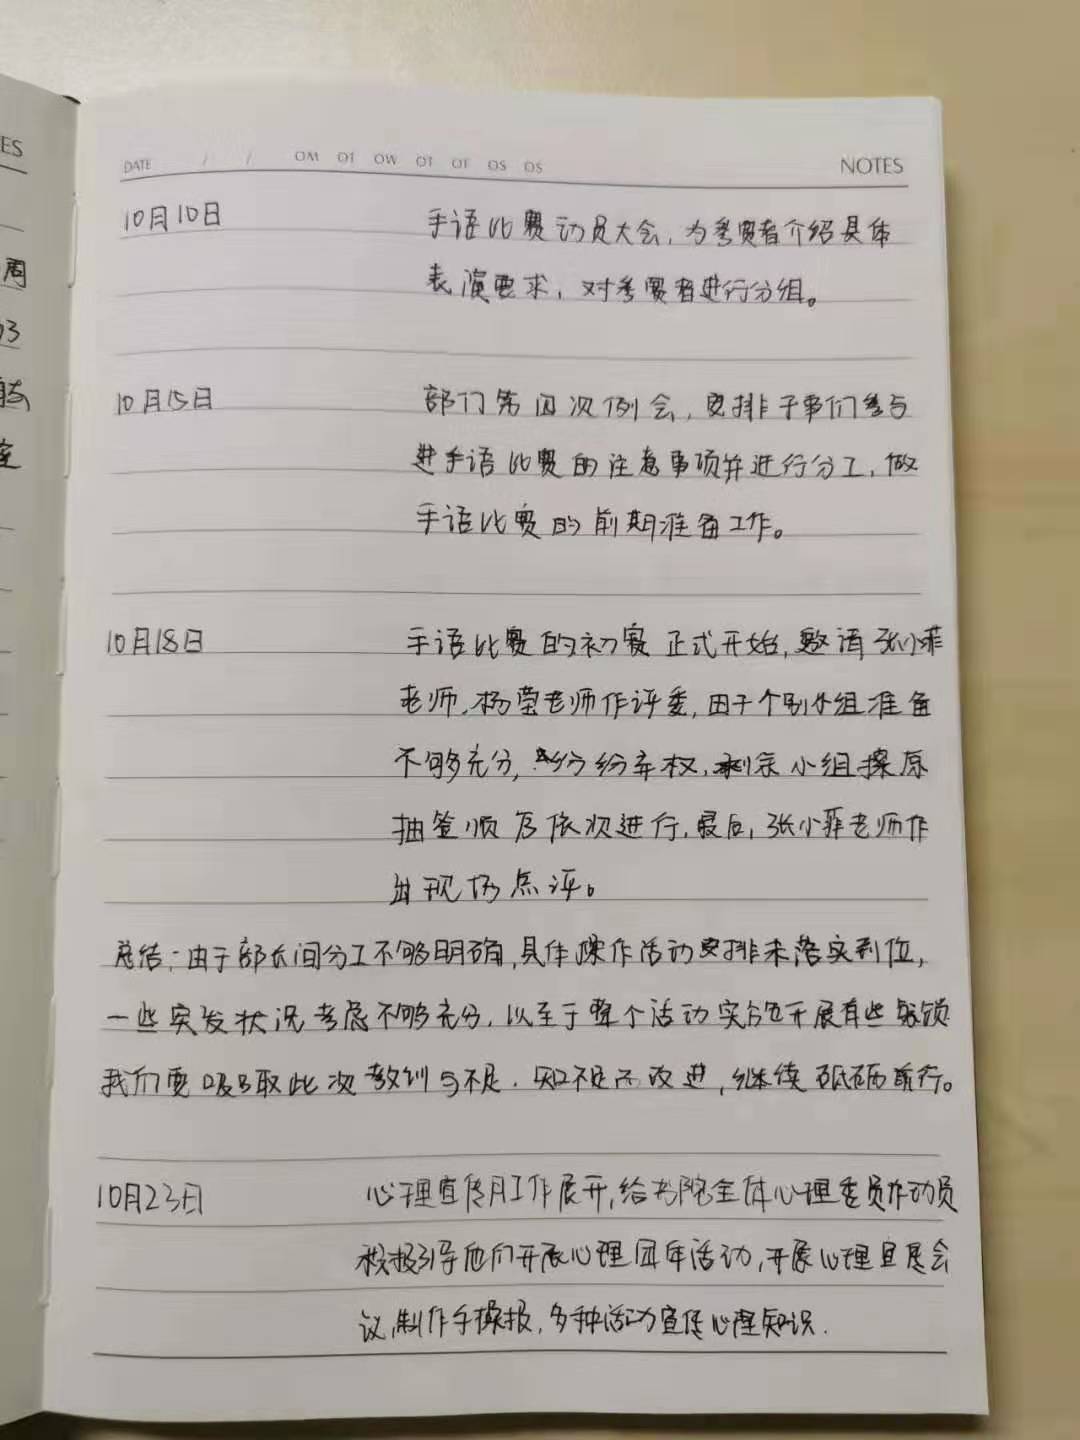 ES
DATE / / OM OT OW OT OF OS OS NOTES
10月10日 手语比赛动员大会,为参赛者介绍具体
表演要求,对参赛者进行分组。
10月15日 部门第四次例会,安排干事们参与
进手语比赛的注意事项并进行分工,做
手语比赛的前期准备工作。
10月18日 手语比赛的初赛正式开始,邀请张小菲
老师,杨莹老师作评委,由于个别小组准备
不够充分,纷纷弃权,剩余小组按原
抽签顺序依次进行,最后,张小菲老师作
出现场点评。
总结:由于部长间分工不够明确,具体操作活动安排未落实到位,
一些突发状况考虑不够充分,以至于整个活动实施开展有些
我们要吸取此次教训与不足,知不足而改进,继续砥砺前行。
10月23日 心理宣传月工作展开,给书院全体心理委员作动员
积极引导他们开展心理团年活动,开展心理宣展会
议,制作手操报,多种活动宣传心理知识.
周